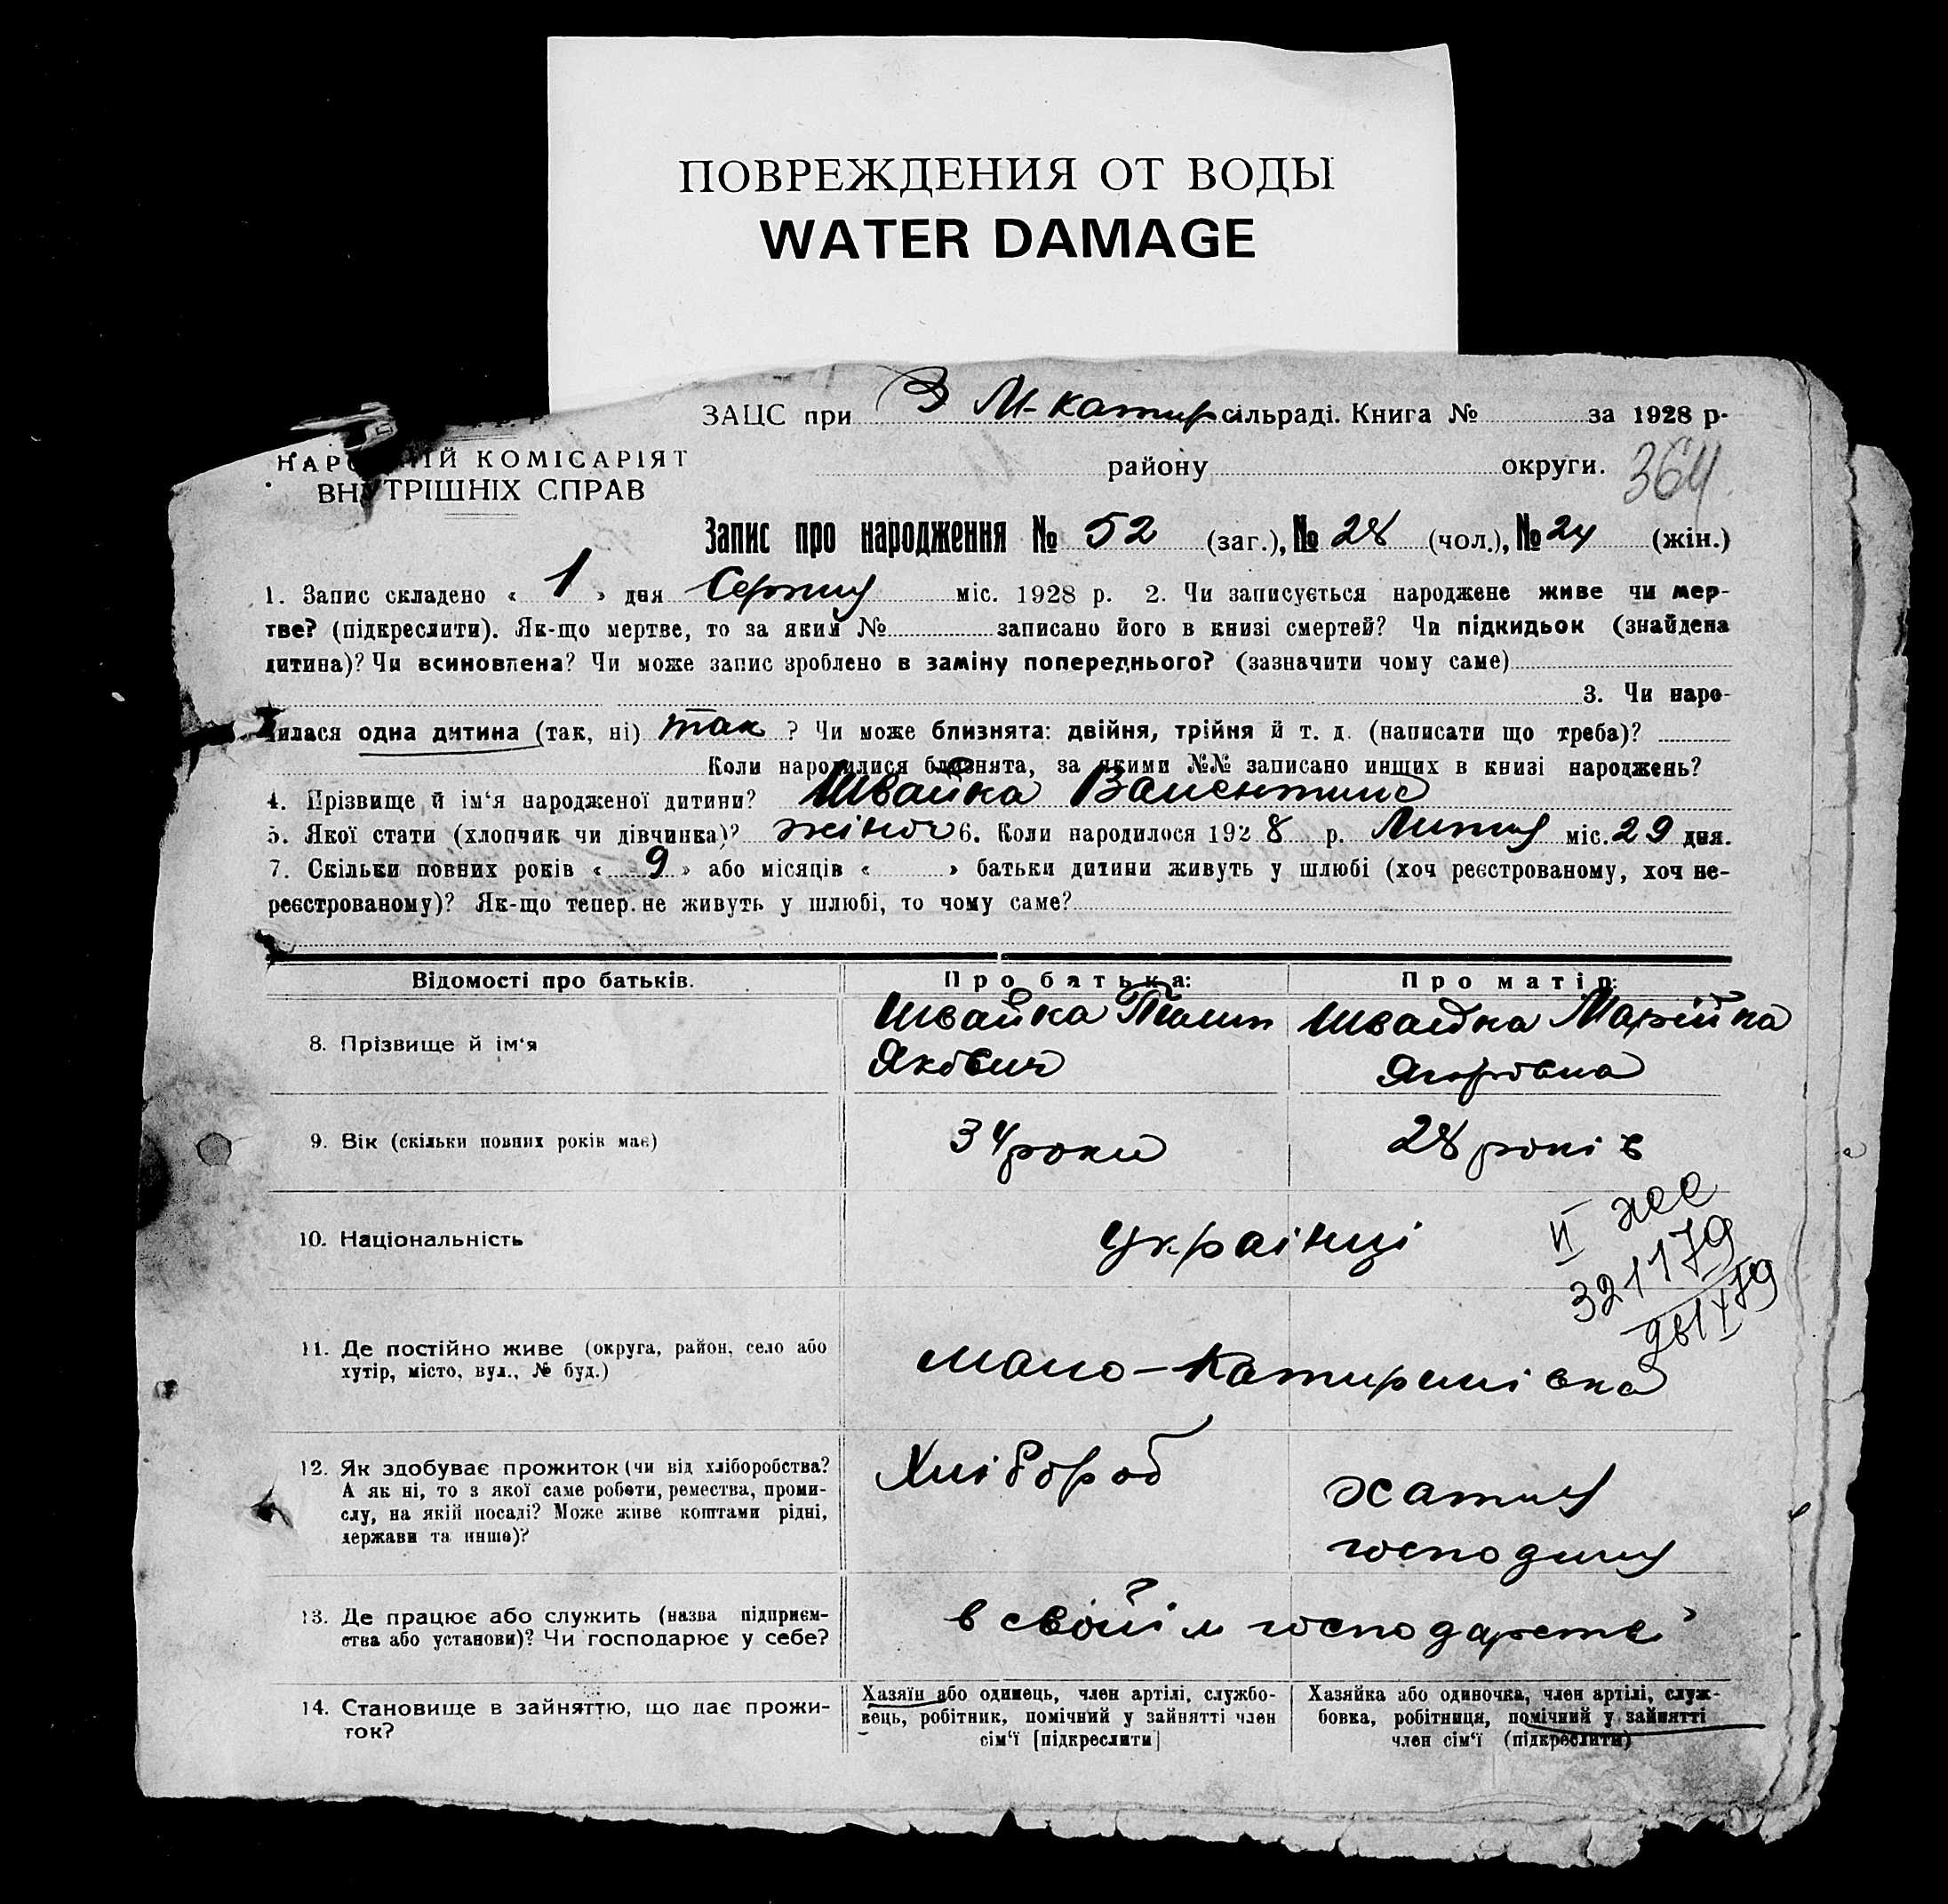 ПОВРЕЖДЕНИЯ ОТ ВОДЫ
WATER DAMAGE
ЗАЦС при З М-катир сільраді. Книга № за 1928 р.
НАР ІЙ КОМІСАРІЯТ
ВНУТРІШНІХ СПРАВ
району округи. 364
Запис про народження № 52 (заг.), № 28 (чол.), № 24 (жін.)
1. Запис складено « 1 » дня Серпня міс. 1928 р. 2. Чи записується народжене живе чи мер-
тве? (підкреслити). Як-що мертве, то за яким № записано його в книзі смертей? Чи підкидьок (знайдена
дитина)? Чи всиновлена? Чи може запис зроблено в заміну попереднього? (зазначити чому саме)
3. Чи наро-
дилася одна дитина (так, ні) так ? Чи може близнята: двійня, трійня й т. д. (написати що треба)?
Коли народилися близнята, за якими №№ записано инших в книзі народжень?
4. Прізвище й ім'я народженої дитини? Швайка Валентина
5. Якої стати (хлопчик чи дівчинка)? жіноч 6. Коли народилося 1928 р. Липня міс. 29 дня.
7. Скільки повних років « 9 » або місяців « » батьки дитини живуть у шлюбі (хоч реєстрованому, хоч не-
реєстрованому)? Як-що тепер не живуть у шлюбі, то чому саме?
Відомості про батьків. Про батька: Про матір:
8. Прізвище й ім'я
Швайка
Якович
Швайка Марійка
Ягорівна
9. Вік (скільки повних років має) 34 роки 28 років
10. Національність українці
II
321179
11. Де постійно живе (округа, район, село або
хутір, місто, вул., № буд.)
Мало-Катиринівка
12. Як здобуває прожиток (чи від хліборобства?
А як ні, то з якої саме роботи, ремества, проми-
слу, на якій посаді? Може живе коштами рідні,
держави та инше)?
Хлібороб
хатня
господиня
13. Де працює або служить (назва підприєм-
ства або установи)? Чи господарює у себе?
в своїм господарстві
14. Становище в зайняттю, що дає прожи-
ток?
Хазяїн або одинець, член артілі, службо-
вець, робітник, помічний у зайнятті член
сім'ї [підкреслити]
Хазяйка або одиночка, член артілі, служ-
бовка, робітниця, помічний у зайнятті
член сім'ї (підкреслити)